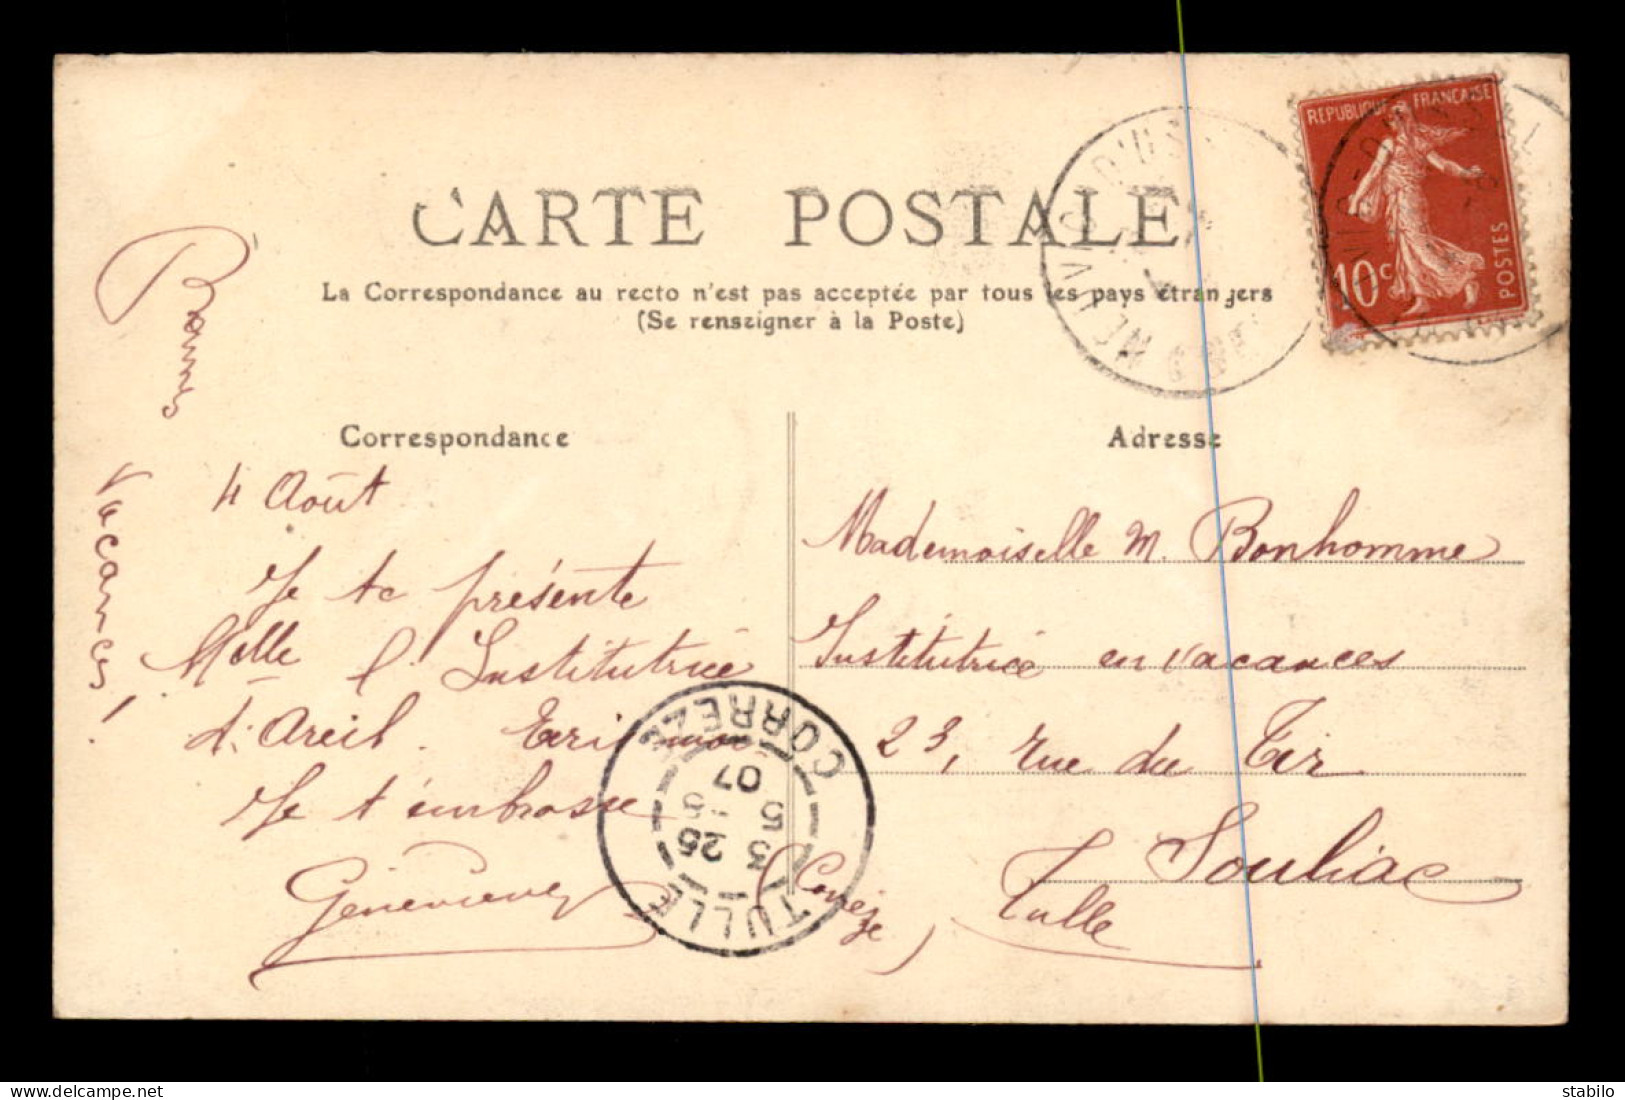 CARTE POSTALE
La Correspondance au recto n'est pas acceptée par tous les pays étrangers
(Se renseigner à la Poste)
REPUBLIQUE FRANÇAISE
10c POSTES
Correspondance
Adresse
Bonnes
vacances!
4 Août
Je te présente
Melle l'Institutrice
d'
Je t'embrasse
Geneviève
Mademoiselle M. Bonhomme
Institutrice en vacances
23, rue du Tir
Souliac
Tulle
(Corrèze)
TULLE
CORREZE
07
NEUVIC D'USSEL
stabilo